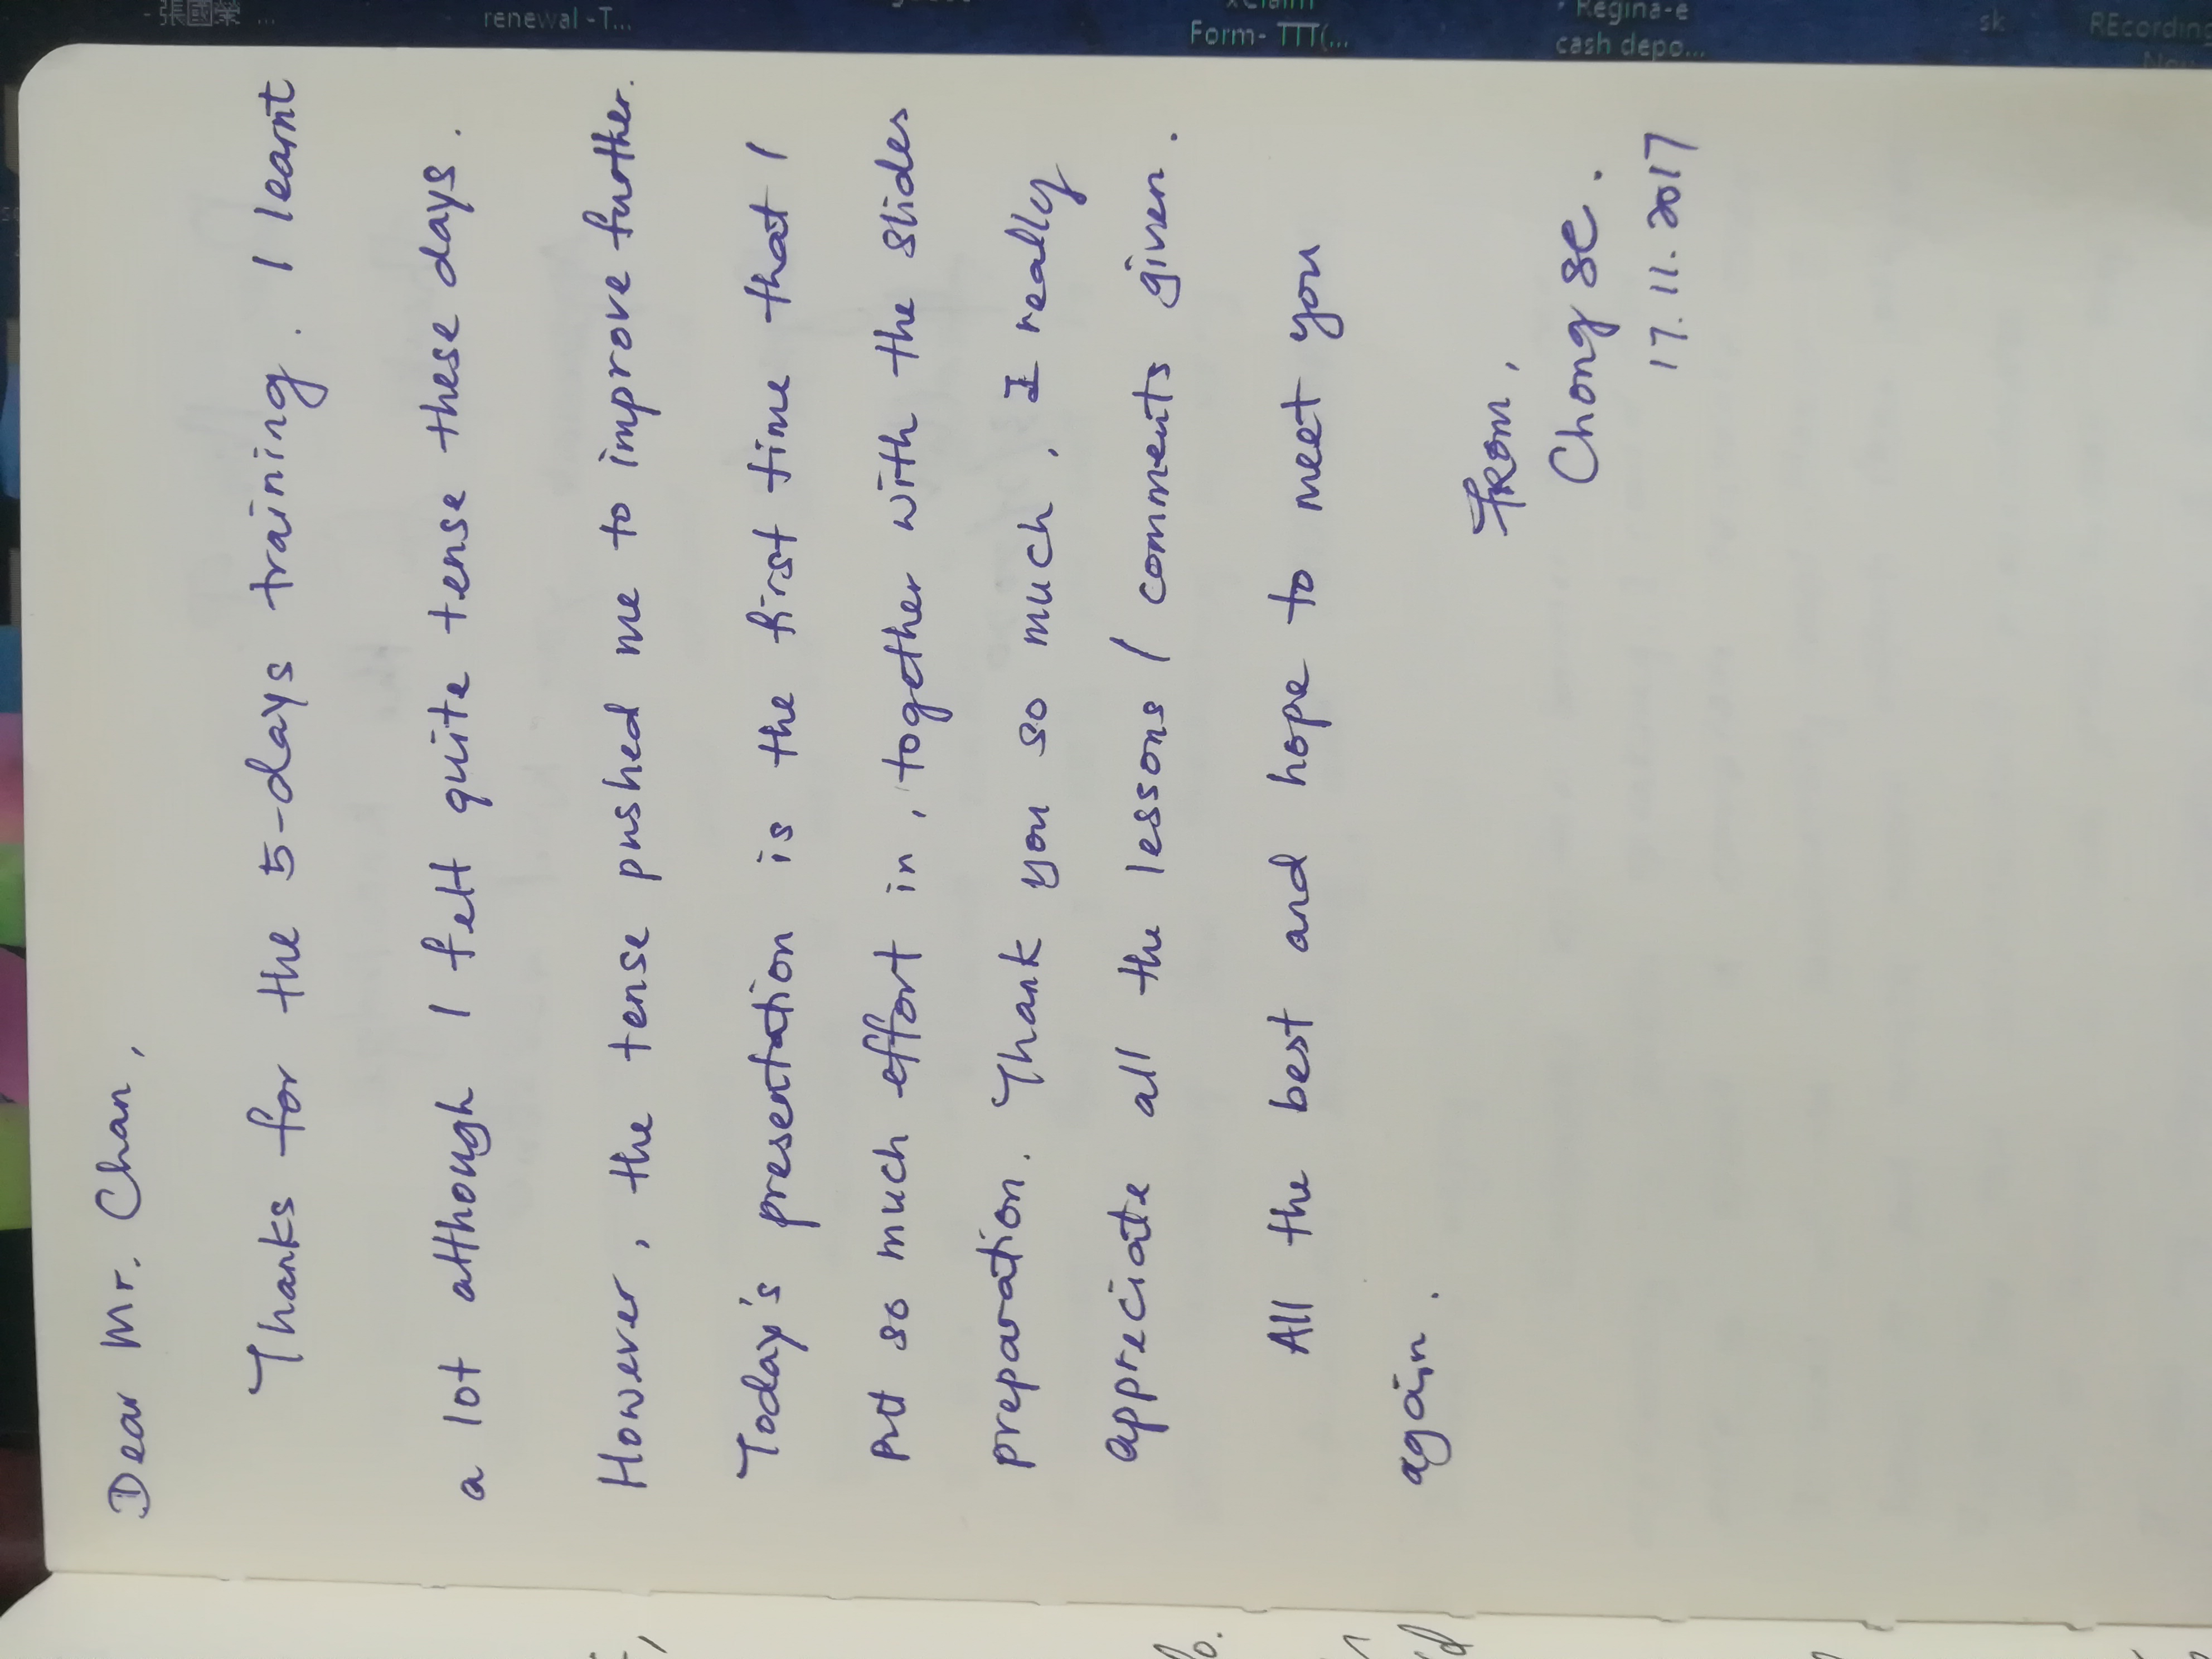 Dear Mr. Chan,
Thanks for the 5-days training. I learnt
a lot although I felt quite tense these days.
However, the tense pushed me to improve further.
Today's presentation is the first time that I
put so much effort in, together with the slides
preparation. Thank you so much, I really
appreciate all the lessons / comments given.
All the best and hope to meet you
again.
From,
Chong SC.
17.11.2017
- 張國榮 ...
renewal -T...
Form- TTT(...
Regina-e
cash depo...
sk
REcording